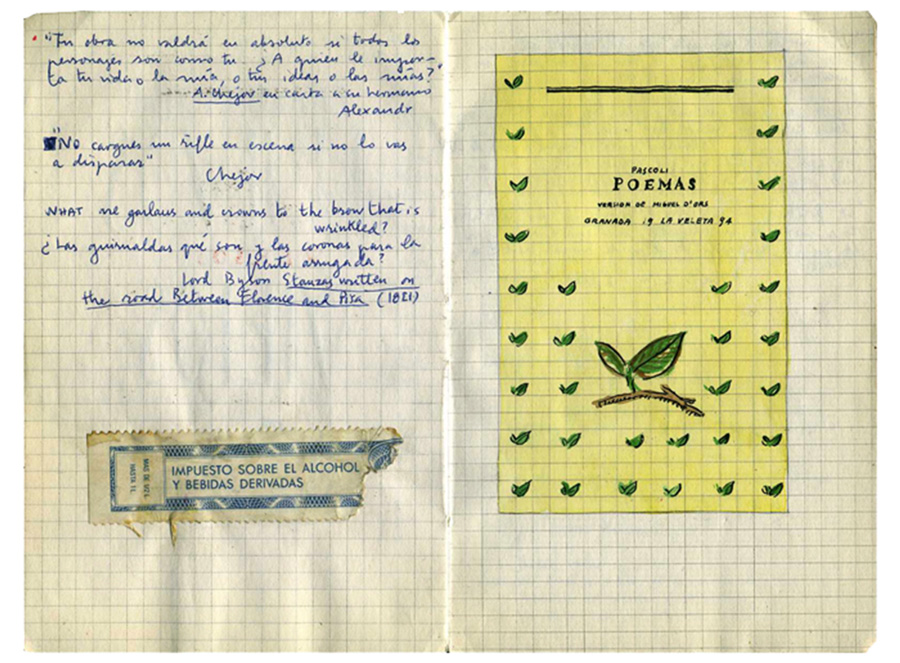 "Tu obra no valdrá en absoluto si todos los
personajes son como tu. ¿A quién le impor-
ta tu vida o la mía, o tus ideas o las mías?"
A. Chejov en carta a su hermano
Alexandr
"No cargues un rifle en escena si no lo vas
a disparar"
Chejov
WHAT are garlans and crowns to the brow that is
wrinkled?
¿Las guirnaldas qué son y las coronas para la
frente arrugada?
Lord Byron Stanzas written on
the road Between Florence and Pisa (1821)
MAS DE 1/2 L.
HASTA 1 L.
IMPUESTO SOBRE EL ALCOHOL
Y BEBIDAS DERIVADAS
PASCOLI
POEMAS
VERSION DE MIGUEL D'ORS
GRANADA 19 LA VELETA 94